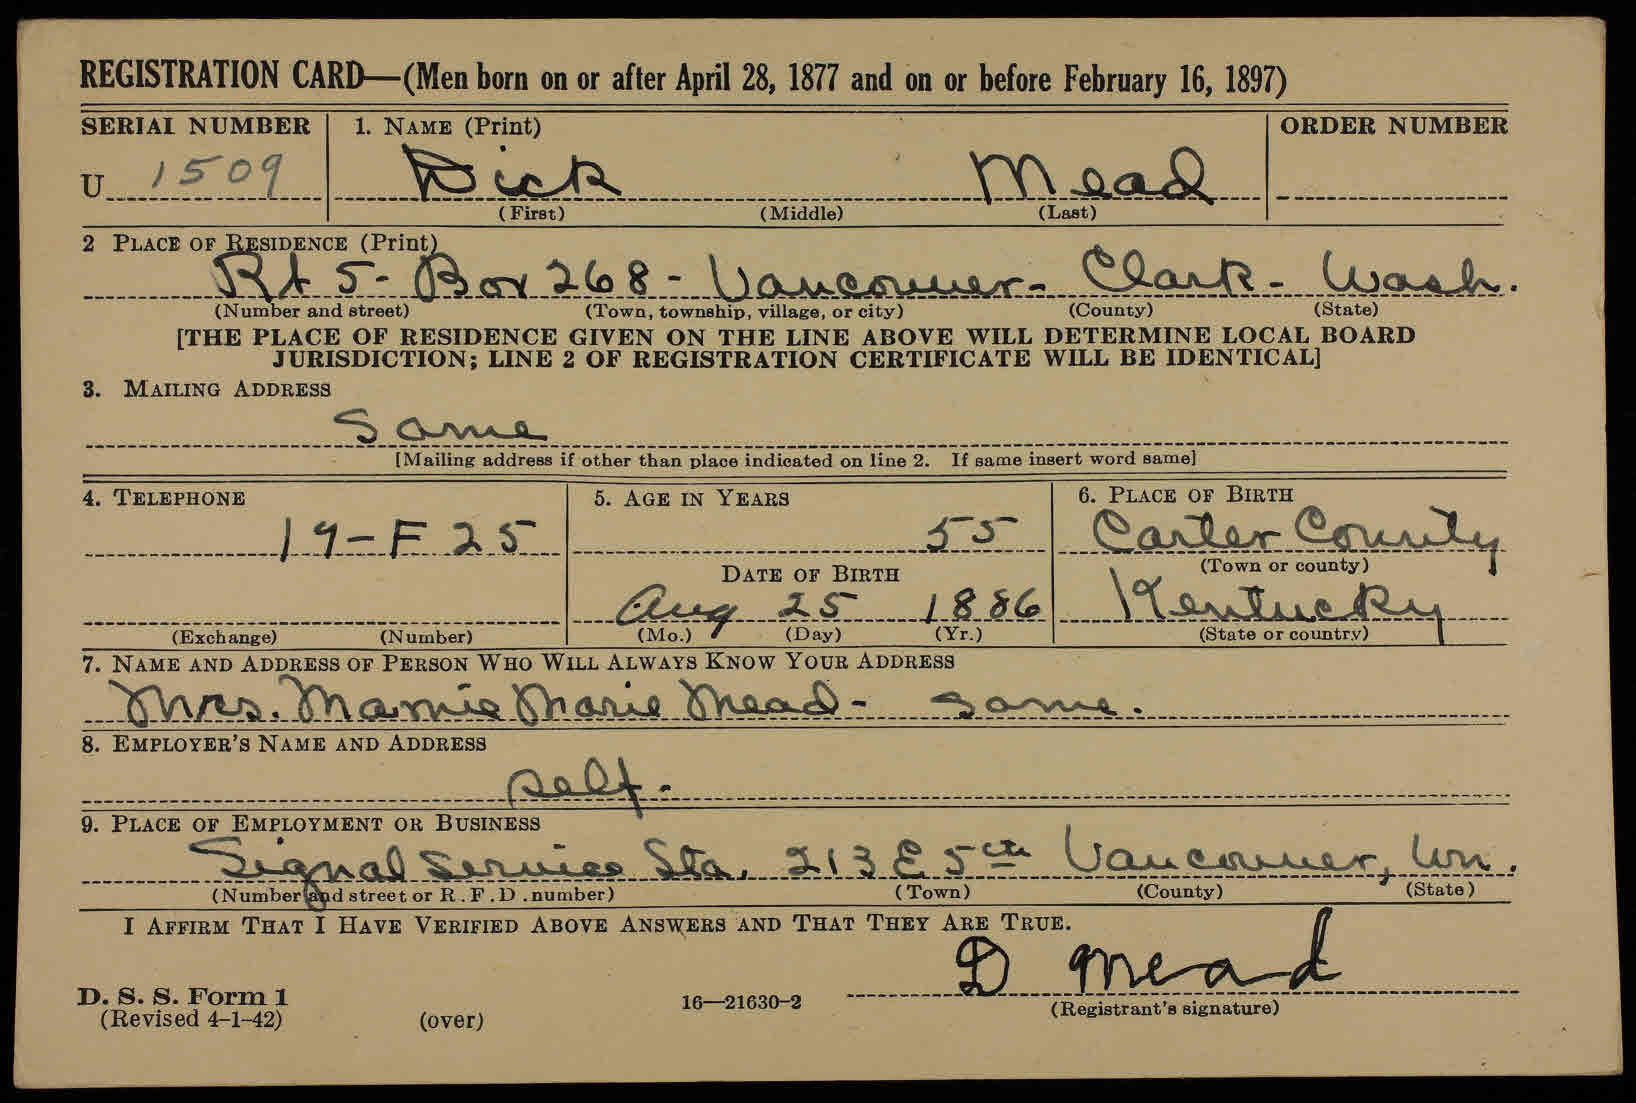 REGISTRATION CARD—(Men born on or after April 28, 1877 and on or before February 16, 1897)
SERIAL NUMBER 1. NAME (Print) ORDER NUMBER
U 1509 Dick Mead
(First) (Middle) (Last)
2 PLACE OF RESIDENCE (Print)
Rt 5- Box 268 - Vancouver- Clark- Wash.
(Number and street) (Town, township, village, or city) (County) (State)
[THE PLACE OF RESIDENCE GIVEN ON THE LINE ABOVE WILL DETERMINE LOCAL BOARD
JURISDICTION; LINE 2 OF REGISTRATION CERTIFICATE WILL BE IDENTICAL]
3. MAILING ADDRESS
Same
[Mailing address if other than place indicated on line 2. If same insert word same]
4. TELEPHONE 5. AGE IN YEARS 6. PLACE OF BIRTH
19-F 25 55 Carter County
DATE OF BIRTH (Town or county)
Aug 25 1886 Kentucky
(Exchange) (Number) (Mo.) (Day) (Yr.) (State or country)
7. NAME AND ADDRESS OF PERSON WHO WILL ALWAYS KNOW YOUR ADDRESS
Mrs. Mamie Marie Mead - same.
8. EMPLOYER'S NAME AND ADDRESS
self-
9. PLACE OF EMPLOYMENT OR BUSINESS
Signal Service Sta. 213 E 5th Vancouver, Wn.
(Number and street or R. F. D. number) (Town) (County) (State)
I AFFIRM THAT I HAVE VERIFIED ABOVE ANSWERS AND THAT THEY ARE TRUE.
D Mead
D. S. S. Form 1 16—21630-2 (Registrant's signature)
(Revised 4-1-42) (over)